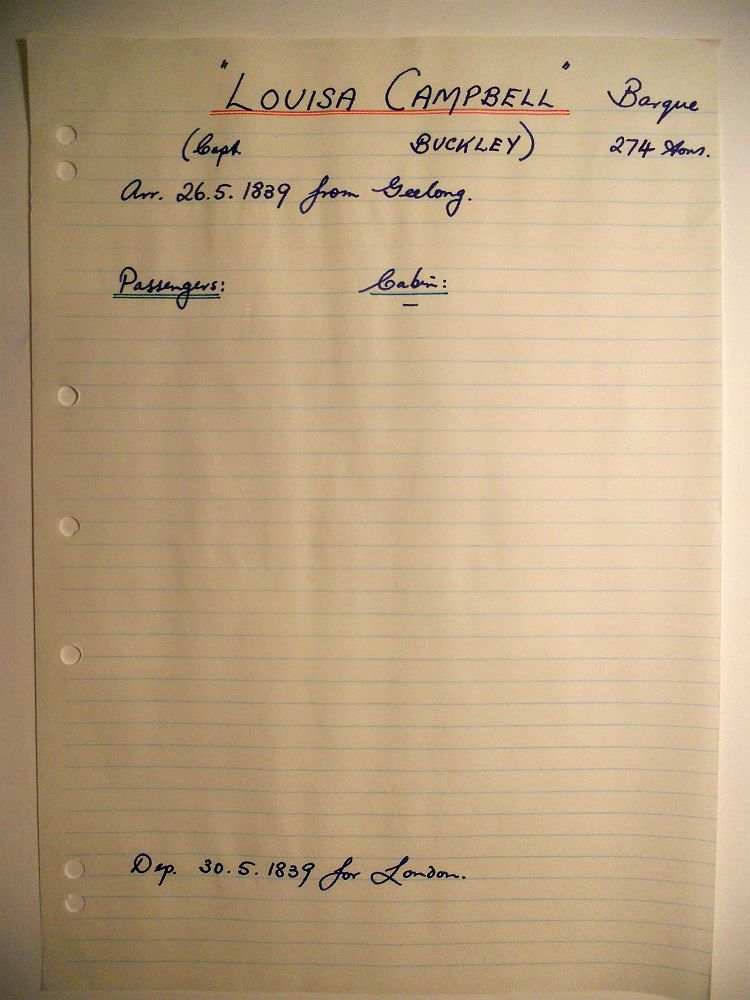 "LOUISA CAMPBELL" Barque
(Capt. BUCKLEY) 274 tons.
Arr. 26.5.1839 from Geelong.
Passengers: Cabin:
—
Dep. 30.5.1839 for London.